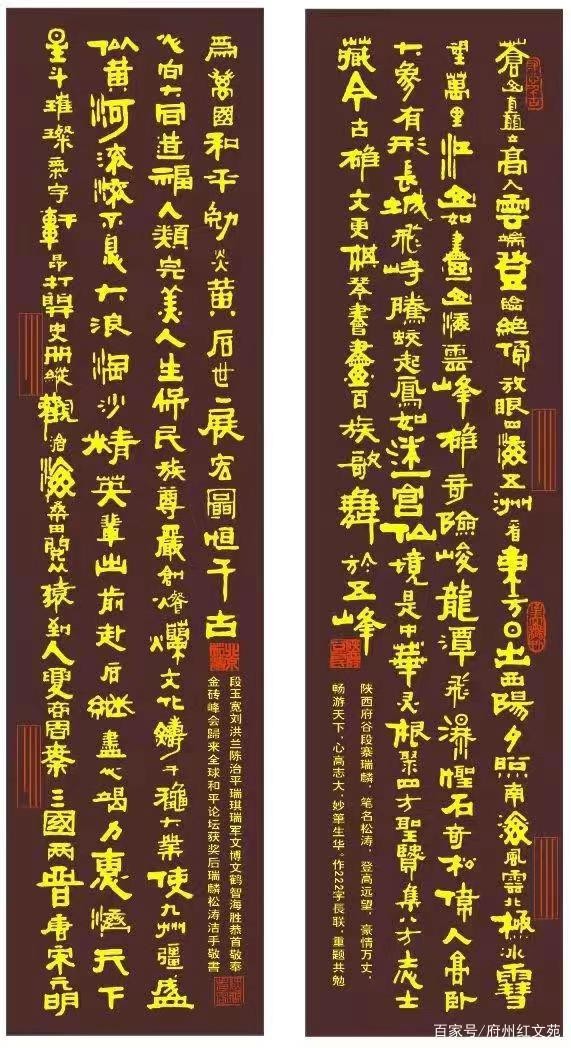 蒼山直矗立高入雲端登臨絶頂放眼四海五洲看東方日出西陽夕照南海風雲北極冰雪
望萬里江山如畫山海雲峰雄奇險峻龍潭飛瀑怪石奇松偉人高卧
大象有形長城飛峙騰蛟起鳳如迷宫仙境是中華灵根聚四方聖賢集八方志士
藏今古雄文更棋琴書畫百族歌舞於五峰
陝西府谷段寨瑞麟，笔名松涛，登高远望，豪情万丈，
畅游天下，心高志大，妙筆生华。作222字長联，重题共勉
星斗璀璨寰宇軒昂打開史册縱觀滄海桑田從猿到人夏商周秦三國兩晋唐宋元明
似黄河滚滚不息大浪淘沙精英輩出前赴后繼盡心竭力惠濟天下
心向大同造福人類完美人生保民族尊嚴創燦爛文化鑄千龝大業使九州疆盛
爲萬國和平勉炎黄后世展宏圖恒千古
段玉宽刘洪兰陈治平瑞琪瑞军文博文鹤智海胜恭首敬奉
金砖峰会歸来全球和平论坛获奖后瑞麟松涛洁手敬書
百家号/府州红文苑